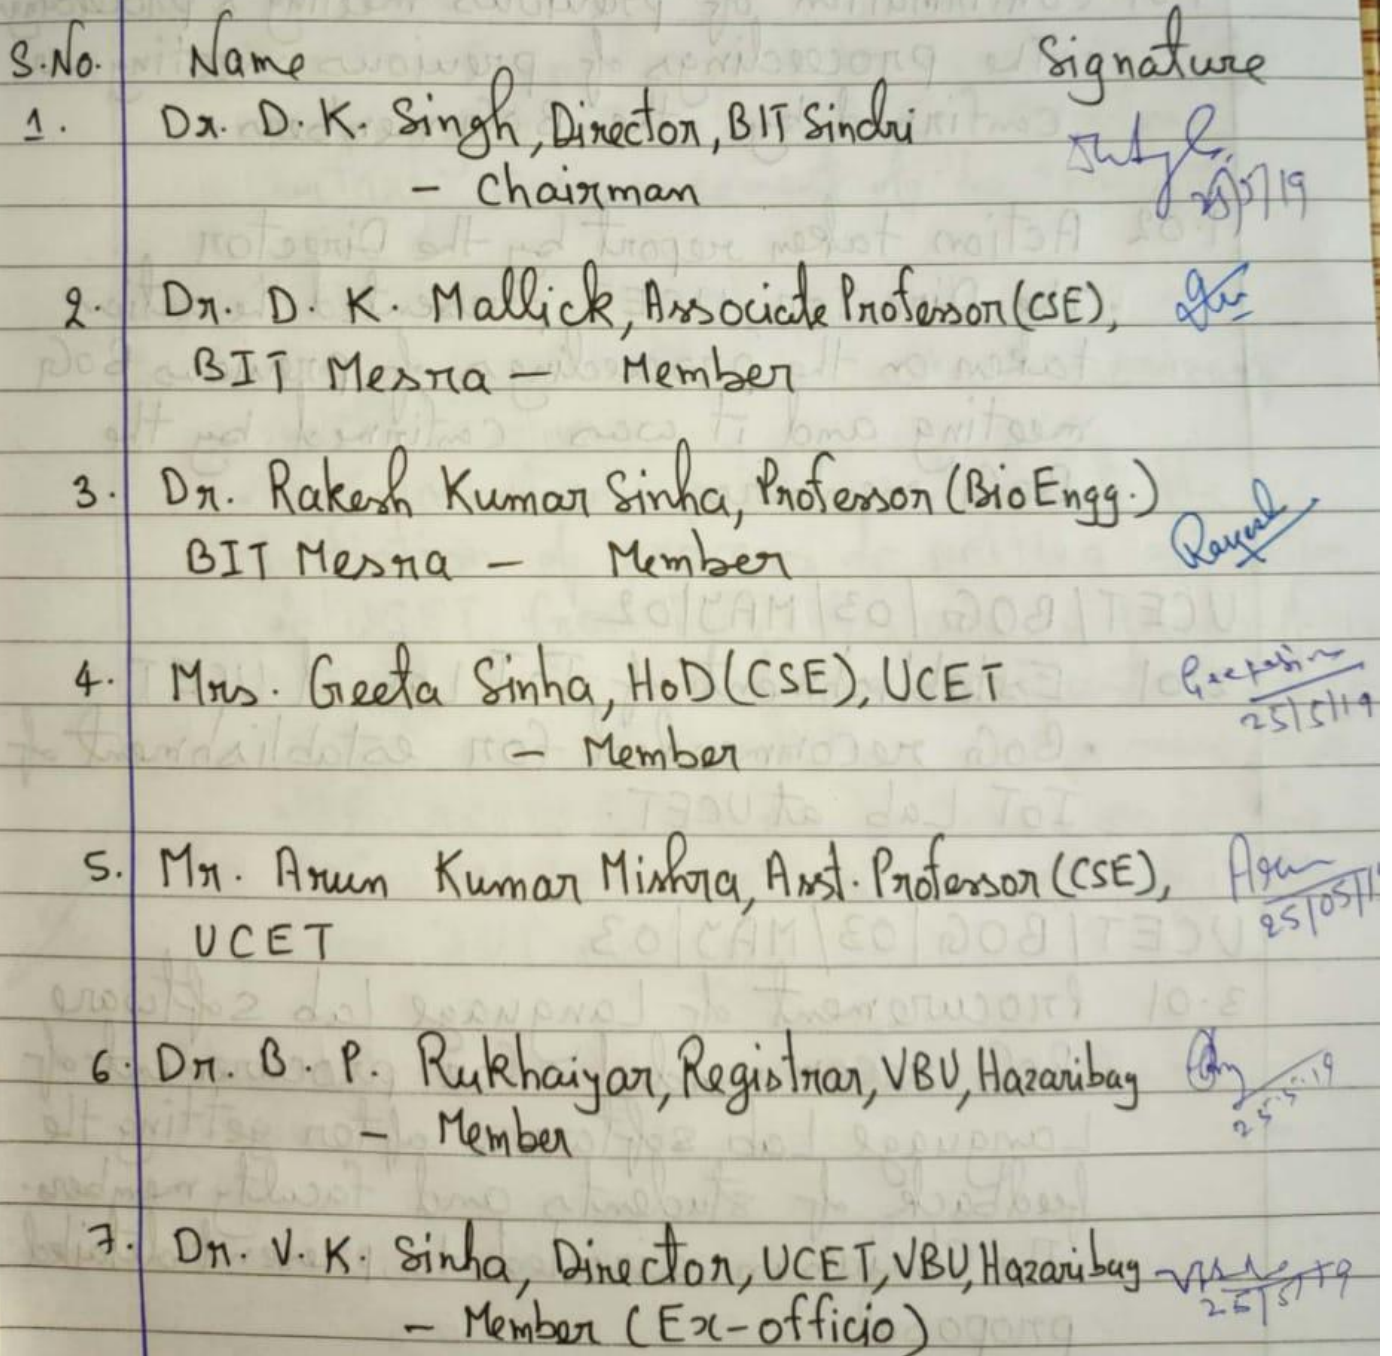 S.No. Name Signature
1. Dr. D. K. Singh, Director, BIT Sindri
- Chairman
25/5/19
2. Dr. D. K. Mallick, Associate Professor (CSE),
BIT Mesra - Member
3. Dr. Rakesh Kumar Sinha, Professor (Bio Engg.)
BIT Mesra - Member
4. Mrs. Geeta Sinha, HoD (CSE), UCET
25/5/19
- Member
5. Mr. Arun Kumar Mishra, Asst. Professor (CSE), Arun
UCET
6. Dr. B. P. Rukhaiyar, Registrar, VBU, Hazaribag
25.5.19
- Member
7. Dr. V. K. Sinha, Director, UCET, VBU, Hazaribag
25/5/19
- Member (Ex-officio)